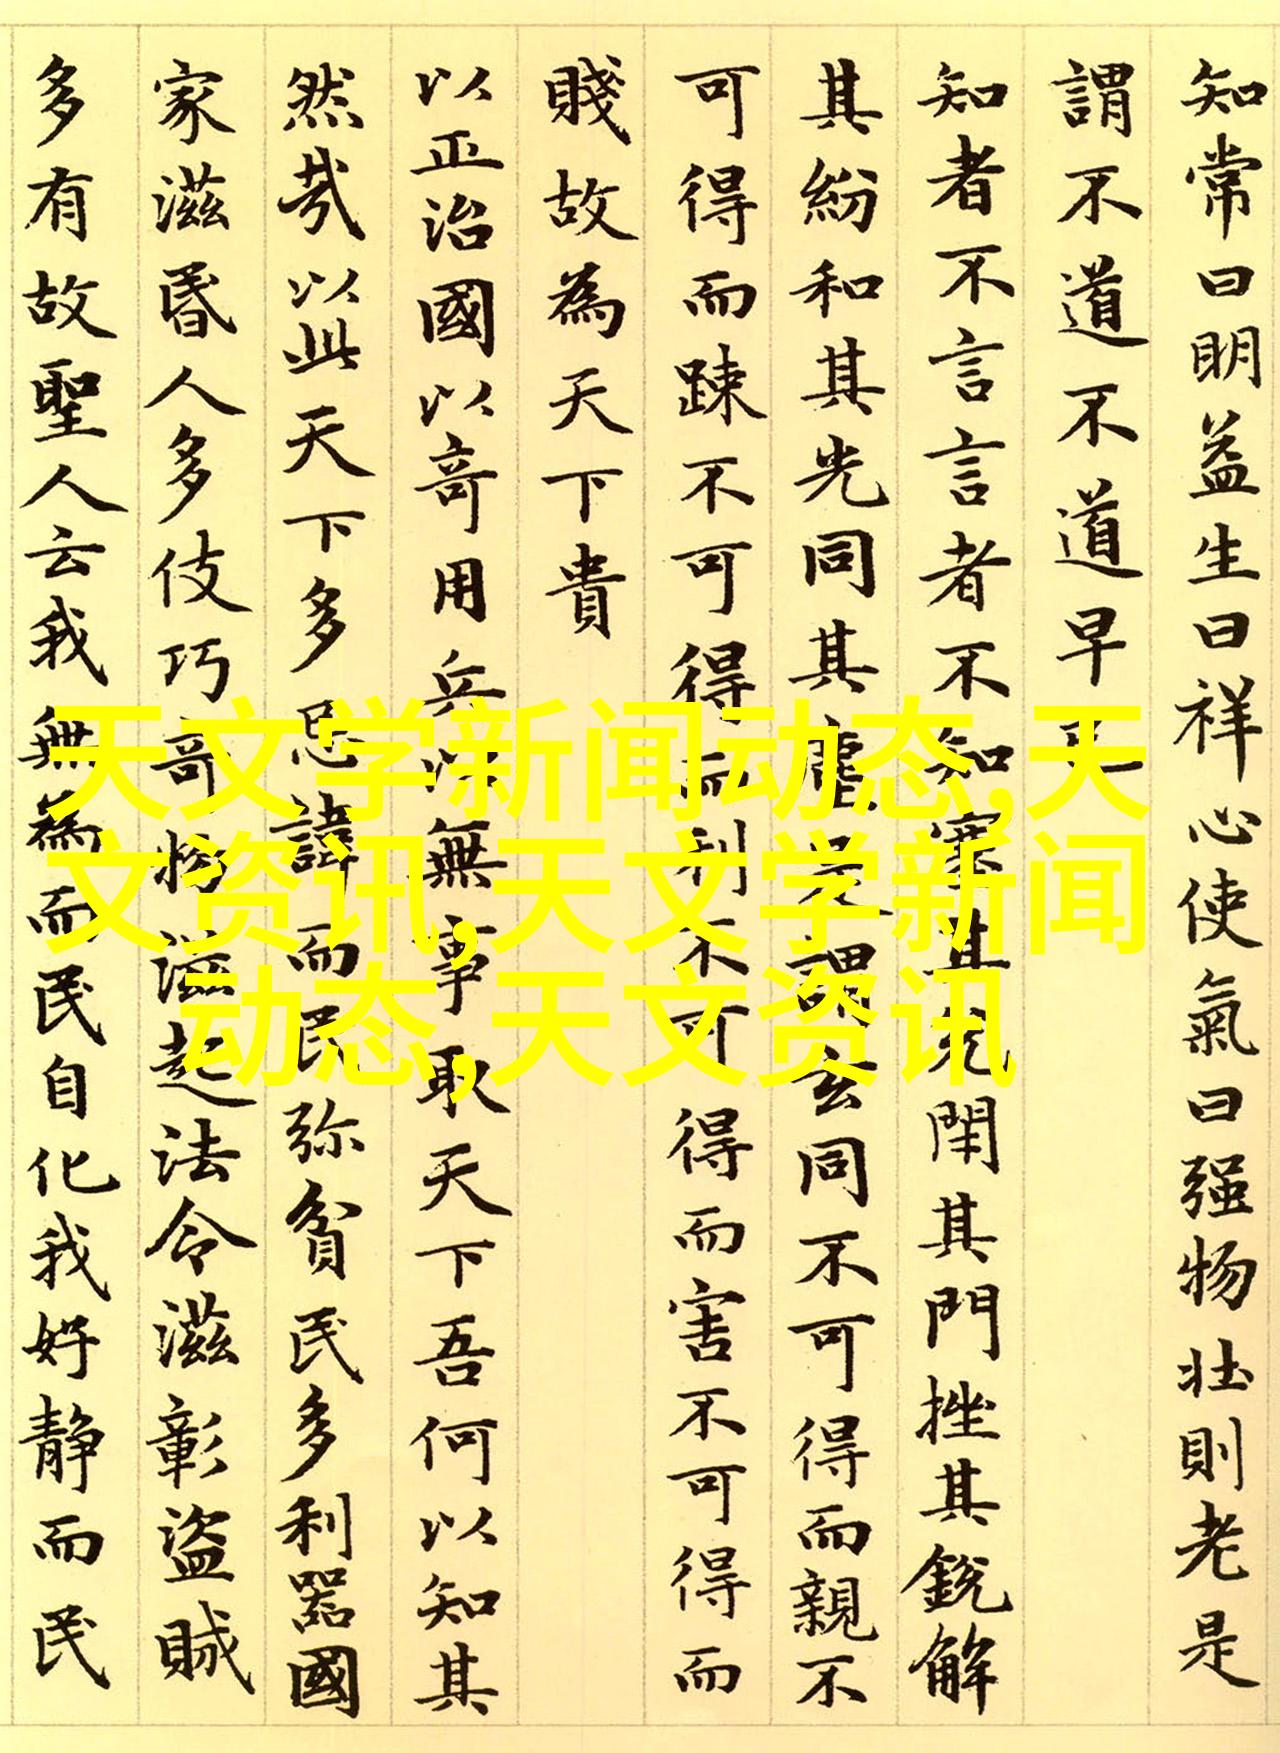 知常曰明益生曰祥心使氣曰强物壯則老是
謂不道不道早已
知者不言言者不知塞其兌閉其門挫其銳解
其紛和其光同其塵是謂玄同不可得而親不
可得而踈不可得而利不可得而害不可得而
賤故為天下貴
以正治國以竒用兵以無事取天下吾何以知其
然哉以此天下多忌諱而民弥貧民多利器國
家滋昬人多伎巧竒物滋起法令滋彰盜賊
多有故聖人云我無為而民自化我好靜而民
天文学新闻动态,天
文资讯,天文学新闻
动态,天文资讯